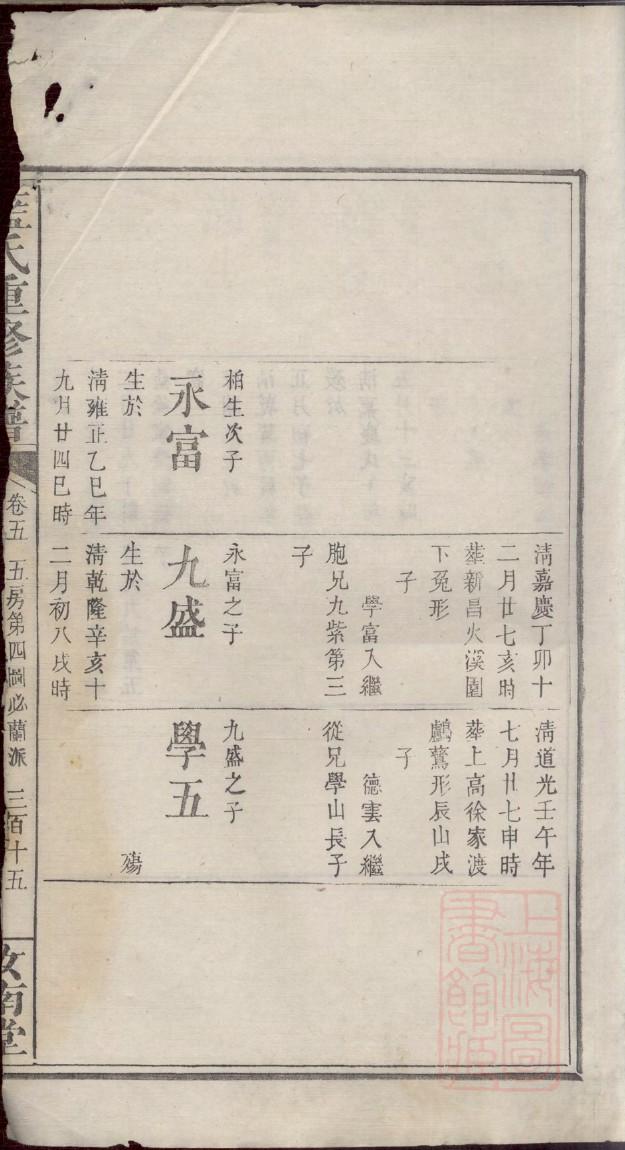 清嘉慶丁卯十
二月廿七亥時
塟新昌火溪園
下兔形
子
學富入繼
胞兄九紫第三
子
清道光壬午年
七月廿七申時
葬上高徐家渡
鸕鶿形辰山戌
子
德雲入繼
從兄學山長子
柏生次子
永富
生於
清雍正乙巳年
九月廿四巳時
永富之子
九盛
生於
清乾隆辛亥十
二月初八戌時
九盛之子
學五
殤
氏重修族譜
卷五
五房第四圖必蘭派
三百十五
汝南堂
上海圖書館藏